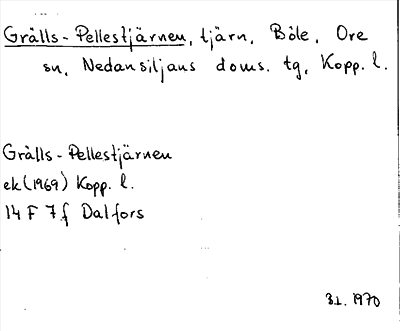 Grålls-Pellestjärnen, tjärn, Böle, Ore
sn, Nedansiljans doms. tg, Kopp. l.
Grålls-Pellestjärnen
ek (1969) Kopp. l.
14 F 7 f Dalfors
1970